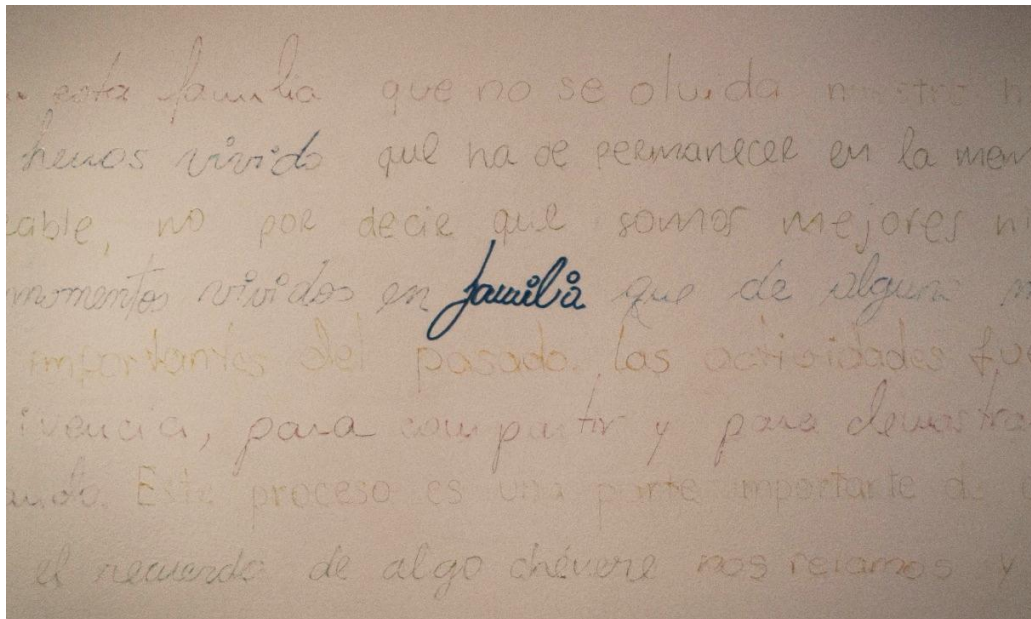 esta familia que no se olvida nuestro
hemos vivido que ha de permanecer en la men
cable, no por decir que somos mejores n
momentos vividos en familia que de alguna m
importantes del pasado. Las actividades fu
ivencia, para compartir y para demostra
ando. Este proceso es una parte importante de
el recuerdo de algo chévere nos reíamos y